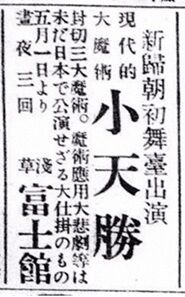 新歸朝初舞臺出演
現代的
大魔術
小天勝
封切三大魔術。魔術應用大悲劇等は
未だ日本で公演せざる大仕掛のもの
五月一日より
晝夜三回
淺草
富士館